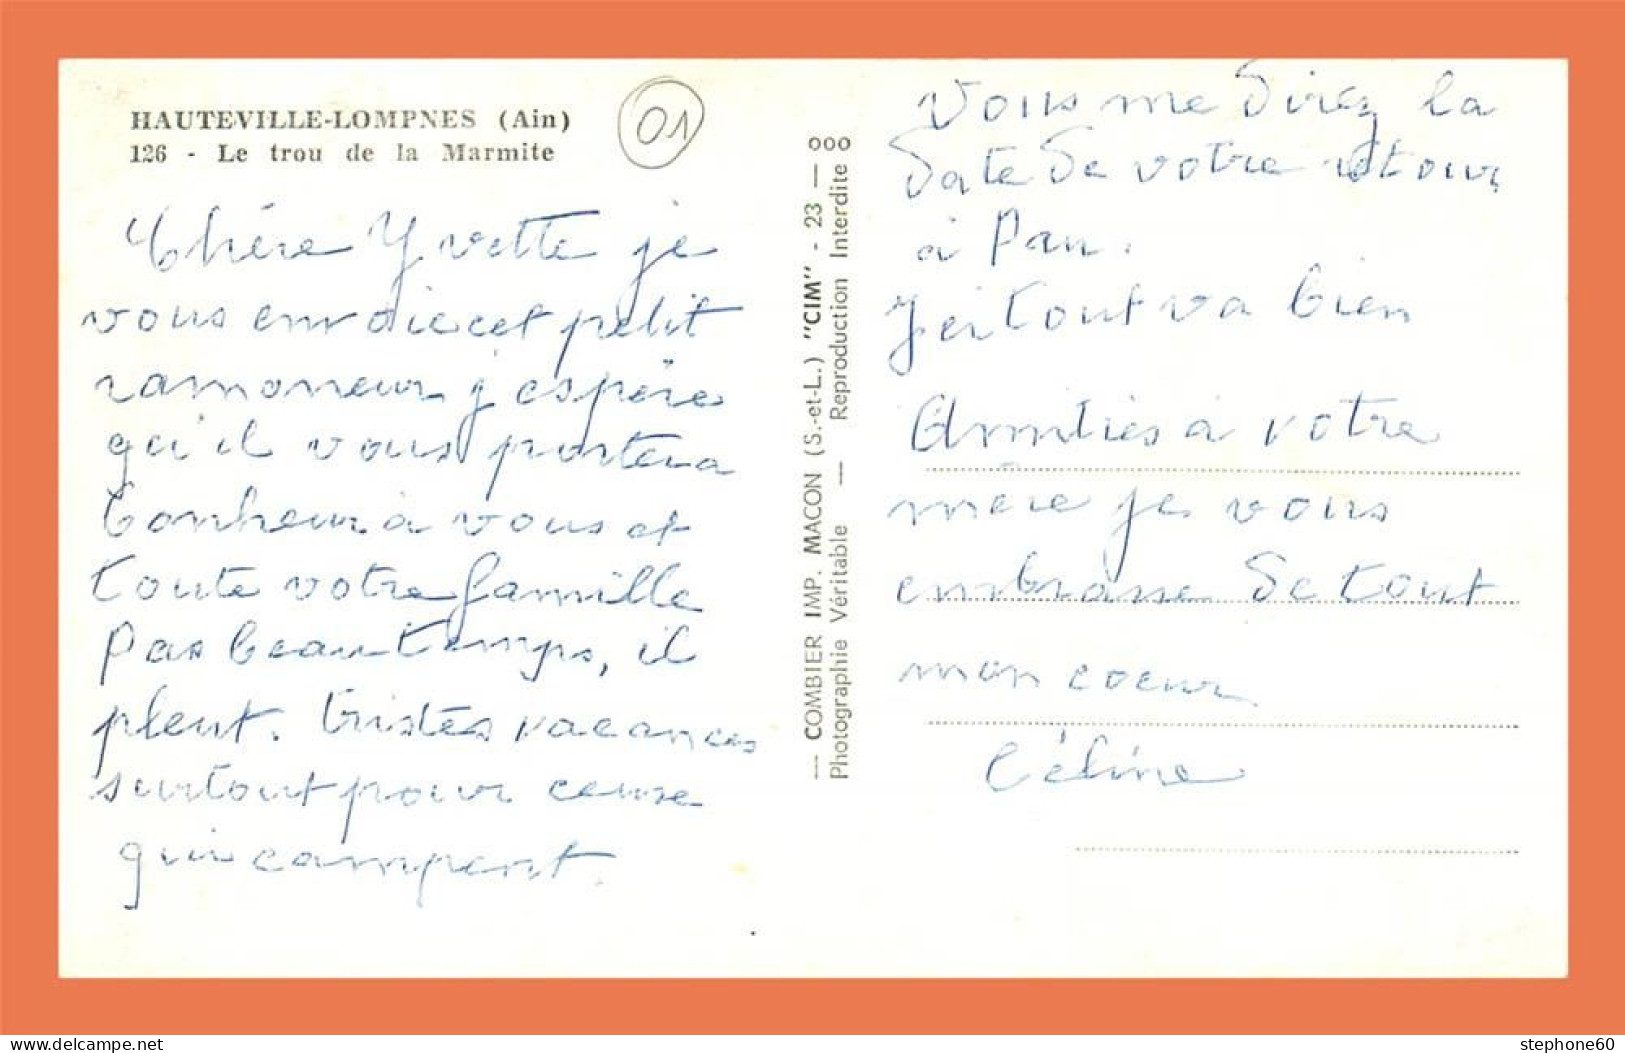 HAUTEVILLE-LOMPNES (Ain)
126 - Le trou de la Marmite
01
Chère Yvette je
vous envoie cet petit
ramoneur j'espère
qu'il vous portera
bonheur à vous et
toute votre famille
Pas beau temps, il
pleut. Tristes vacances
surtout pour ceuxe
qui campent.
— COMBIER IMP. MACON (S.-et-L.) "CIM" - 23 — ooo
Photographie Véritable — Reproduction Interdite
Vous me direz la
date de votre retour
à Pau.
Ici tout va bien
Amitiés à votre
mère je vous
embrasse de tout
mon coeur
Céline
www.delcampe.net
stephone60